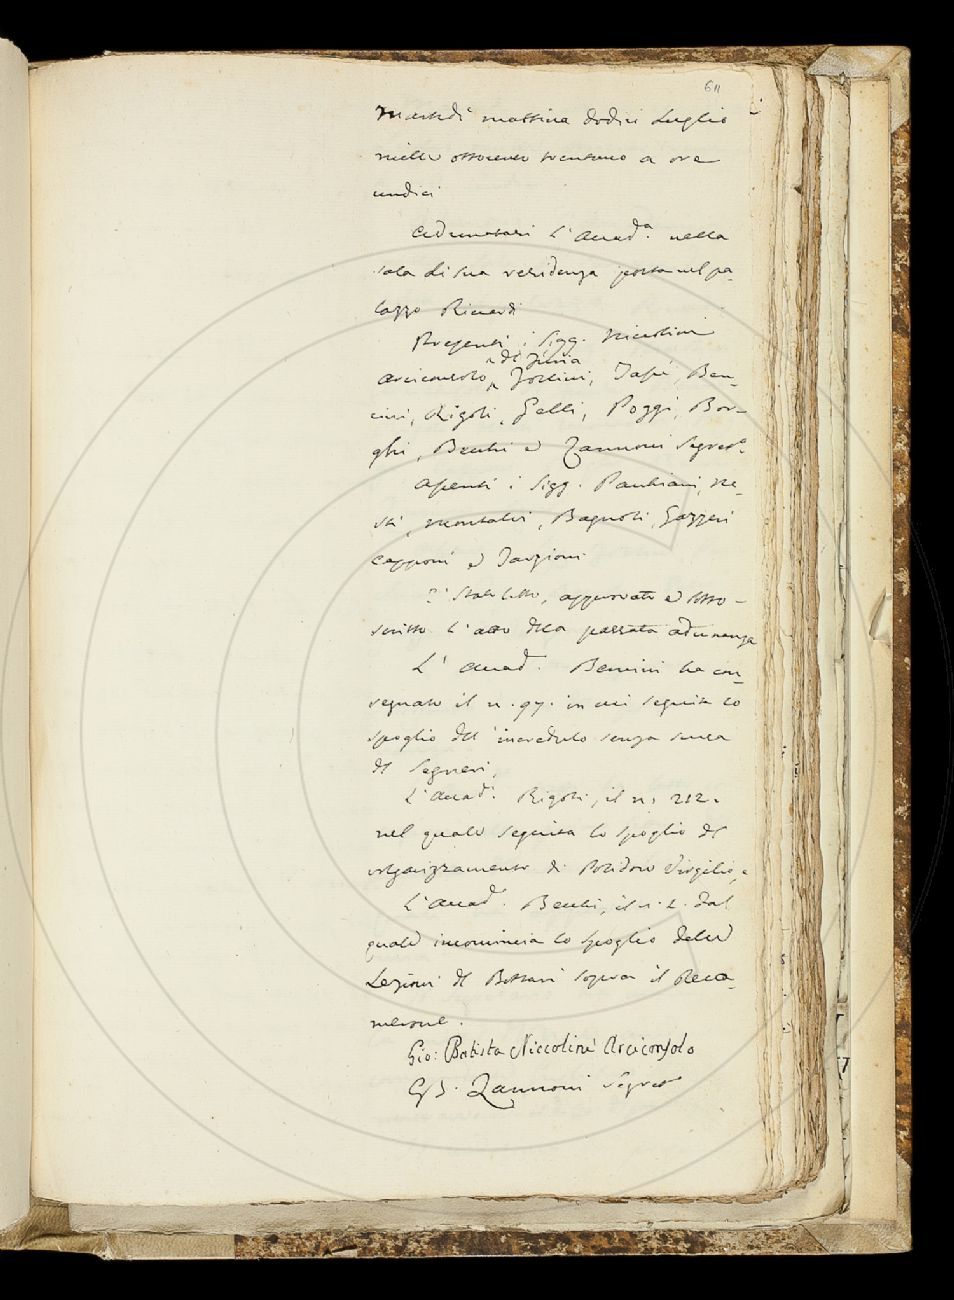 611
Martedì mattina dodici Luglio
mille ottocento trentuno a ore
undici
Adunatasi l'Accad.a nella
sala di sua residenza posta nel pa-
lazzo Riccardi
Presenti i Sigg. Niccolini
del Furia
Arciconsolo, Follini, Tassi, Ben-
cini, Rigoli, Gelli, Poggi, Bor-
ghi, Becchi e Zannoni Segret.o
Assenti i Sigg. Panciani, Ne-
sti, Montalvi, Bagnoli, Gazzeri
Capponi e Targioni
È stato letto, approvato e sotto-
scritto l'atto della passata adunanza
L'Accad. Bencini ha con-
segnato il n. 97. in cui seguita lo
spoglio dell'incredulo senza scusa
del Segneri,
L'Accad. Rigoli, il n. 212.
nel quale seguita lo spoglio del
volgarizzamento di Polidoro Virgilio, e
L'Accad. Becchi, il n. 2. dal
quale incomincia lo spoglio delle
Lezioni del Bottari sopra il Deca-
merone.
Gio: Batista Niccolini Arciconsolo
GB. Zannoni Segret.o